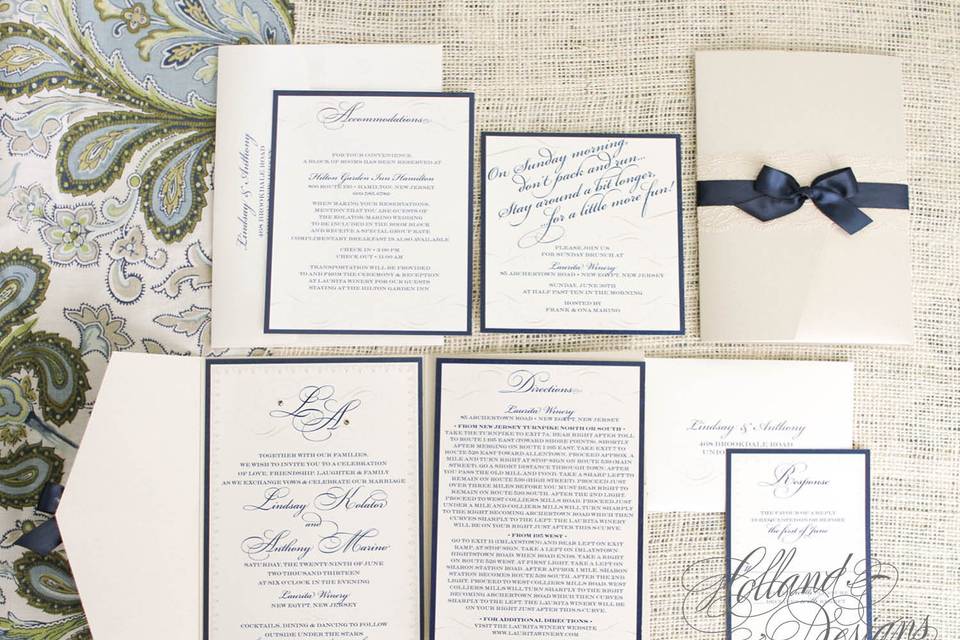 Lindsay & Anthony
468 BROOKDALE ROAD
Accommodations
FOR YOUR CONVENIENCE,
A BLOCK OF ROOMS HAS BEEN RESERVED AT
Hilton Garden Inn Hamilton
800 ROUTE 130 • HAMILTON, NEW JERSEY
WHEN MAKING YOUR RESERVATIONS,
MENTION THAT YOU ARE GUESTS OF
THE KOLATOR/MARINO WEDDING
TO BE INCLUDED IN THE ROOM BLOCK
AND RECEIVE A SPECIAL GROUP RATE
COMPLIMENTARY BREAKFAST IS ALSO AVAILABLE
CHECK IN • 3:00 PM
CHECK OUT • 11:00 AM
TRANSPORTATION WILL BE PROVIDED
TO AND FROM THE CEREMONY & RECEPTION
AT LAURITA WINERY FOR OUR GUESTS
STAYING AT THE HILTON GARDEN INN
On Sunday morning,
don't pack and run...
Stay around a bit longer,
...for a little more fun!
PLEASE JOIN US
FOR SUNDAY BRUNCH AT
Laurita Winery
85 ARCHERTOWN ROAD • NEW EGYPT, NEW JERSEY
SUNDAY, JUNE 30TH
AT HALF PAST TEN IN THE MORNING
HOSTED BY
FRANK & ONA MARINO
LA
TOGETHER WITH OUR FAMILIES,
WE WISH TO INVITE YOU TO A CELEBRATION
OF LOVE, FRIENDSHIP, LAUGHTER & FAMILY
AS WE EXCHANGE VOWS & CELEBRATE OUR MARRIAGE
Lindsay Kolator
and
Anthony Marino
SATURDAY, THE TWENTY-NINTH OF JUNE
TWO THOUSAND THIRTEEN
AT SIX O'CLOCK IN THE EVENING
Laurita Winery
NEW EGYPT, NEW JERSEY
COCKTAILS, DINING & DANCING TO FOLLOW
OUTSIDE UNDER THE STARS
Directions
Laurita Winery
85 ARCHERTOWN ROAD • NEW EGYPT, NEW JERSEY
• FROM NEW JERSEY TURNPIKE NORTH OR SOUTH •
TAKE THE TURNPIKE TO EXIT 7A. BEAR RIGHT AFTER TOLL
TO ROUTE I-195 EAST TOWARD SHORE POINTS. SHORTLY
AFTER MERGING ON ROUTE I-195 EAST, TAKE EXIT 8 TO
ROUTE 539 EAST TOWARD ALLENTOWN. PROCEED APPROX. A
MILE AND TURN RIGHT AT STOP SIGN ON ROUTE 539 (MAIN
STREET); GO A SHORT DISTANCE THROUGH TOWN UNTIL AFTER
YOU PASS THE OLD MILL AND POND. TAKE A SHARP LEFT TO
REMAIN ON ROUTE 539 (HIGH STREET). PROCEED JUST
OVER THREE MILES BEFORE YOU MUST BEAR RIGHT TO
REMAIN ON ROUTE 539 SOUTH. AFTER THE 2ND LIGHT,
PROCEED TO WEST COLLIERS MILLS ROAD. PROCEED JUST
UNDER A MILE AND COLLIERS MILLS WILL TURN SHARPLY
TO THE RIGHT BECOMING ARCHERTOWN ROAD WHICH THEN
CURVES SHARPLY TO THE LEFT. THE LAURITA WINERY
WILL BE ON YOUR RIGHT JUST AFTER THIS S-CURVE.
• FROM 195 WEST •
GO TO EXIT 11 (IMLAYSTOWN) AND BEAR LEFT ON EXIT
RAMP. AT STOP SIGN, TAKE A LEFT ON IMLAYSTOWN
HIGHTSTOWN ROAD. WHEN ROAD ENDS, TAKE A RIGHT
ON TO ROUTE 526 WEST. AT FIRST LIGHT, TAKE A LEFT ON
SHARON STATION ROAD. AFTER APPROX. 4 MILES, SHARON
STATION BECOMES ROUTE 539 SOUTH. AFTER THE 2ND LIGHT,
PROCEED TO WEST COLLIERS MILL ROAD. PROCEED JUST
UNDER A MILE AND COLLIERS MILLS WILL TURN SHARPLY
TO THE RIGHT BECOMING ARCHERTOWN ROAD WHICH THEN
CURVES SHARPLY TO THE LEFT. THE LAURITA WINERY WILL BE
ON YOUR RIGHT JUST AFTER THIS S-CURVE.
• FOR ADDITIONAL DIRECTIONS •
VISIT THE LAURITA WINERY WEBSITE
WWW.LAURITAWINERY.COM
Lindsay & Anthony
468 BROOKDALE ROAD
Response
THE FAVOUR OF A REPLY
IS REQUESTED ON OR BEFORE
the first of June
Holland
Designs